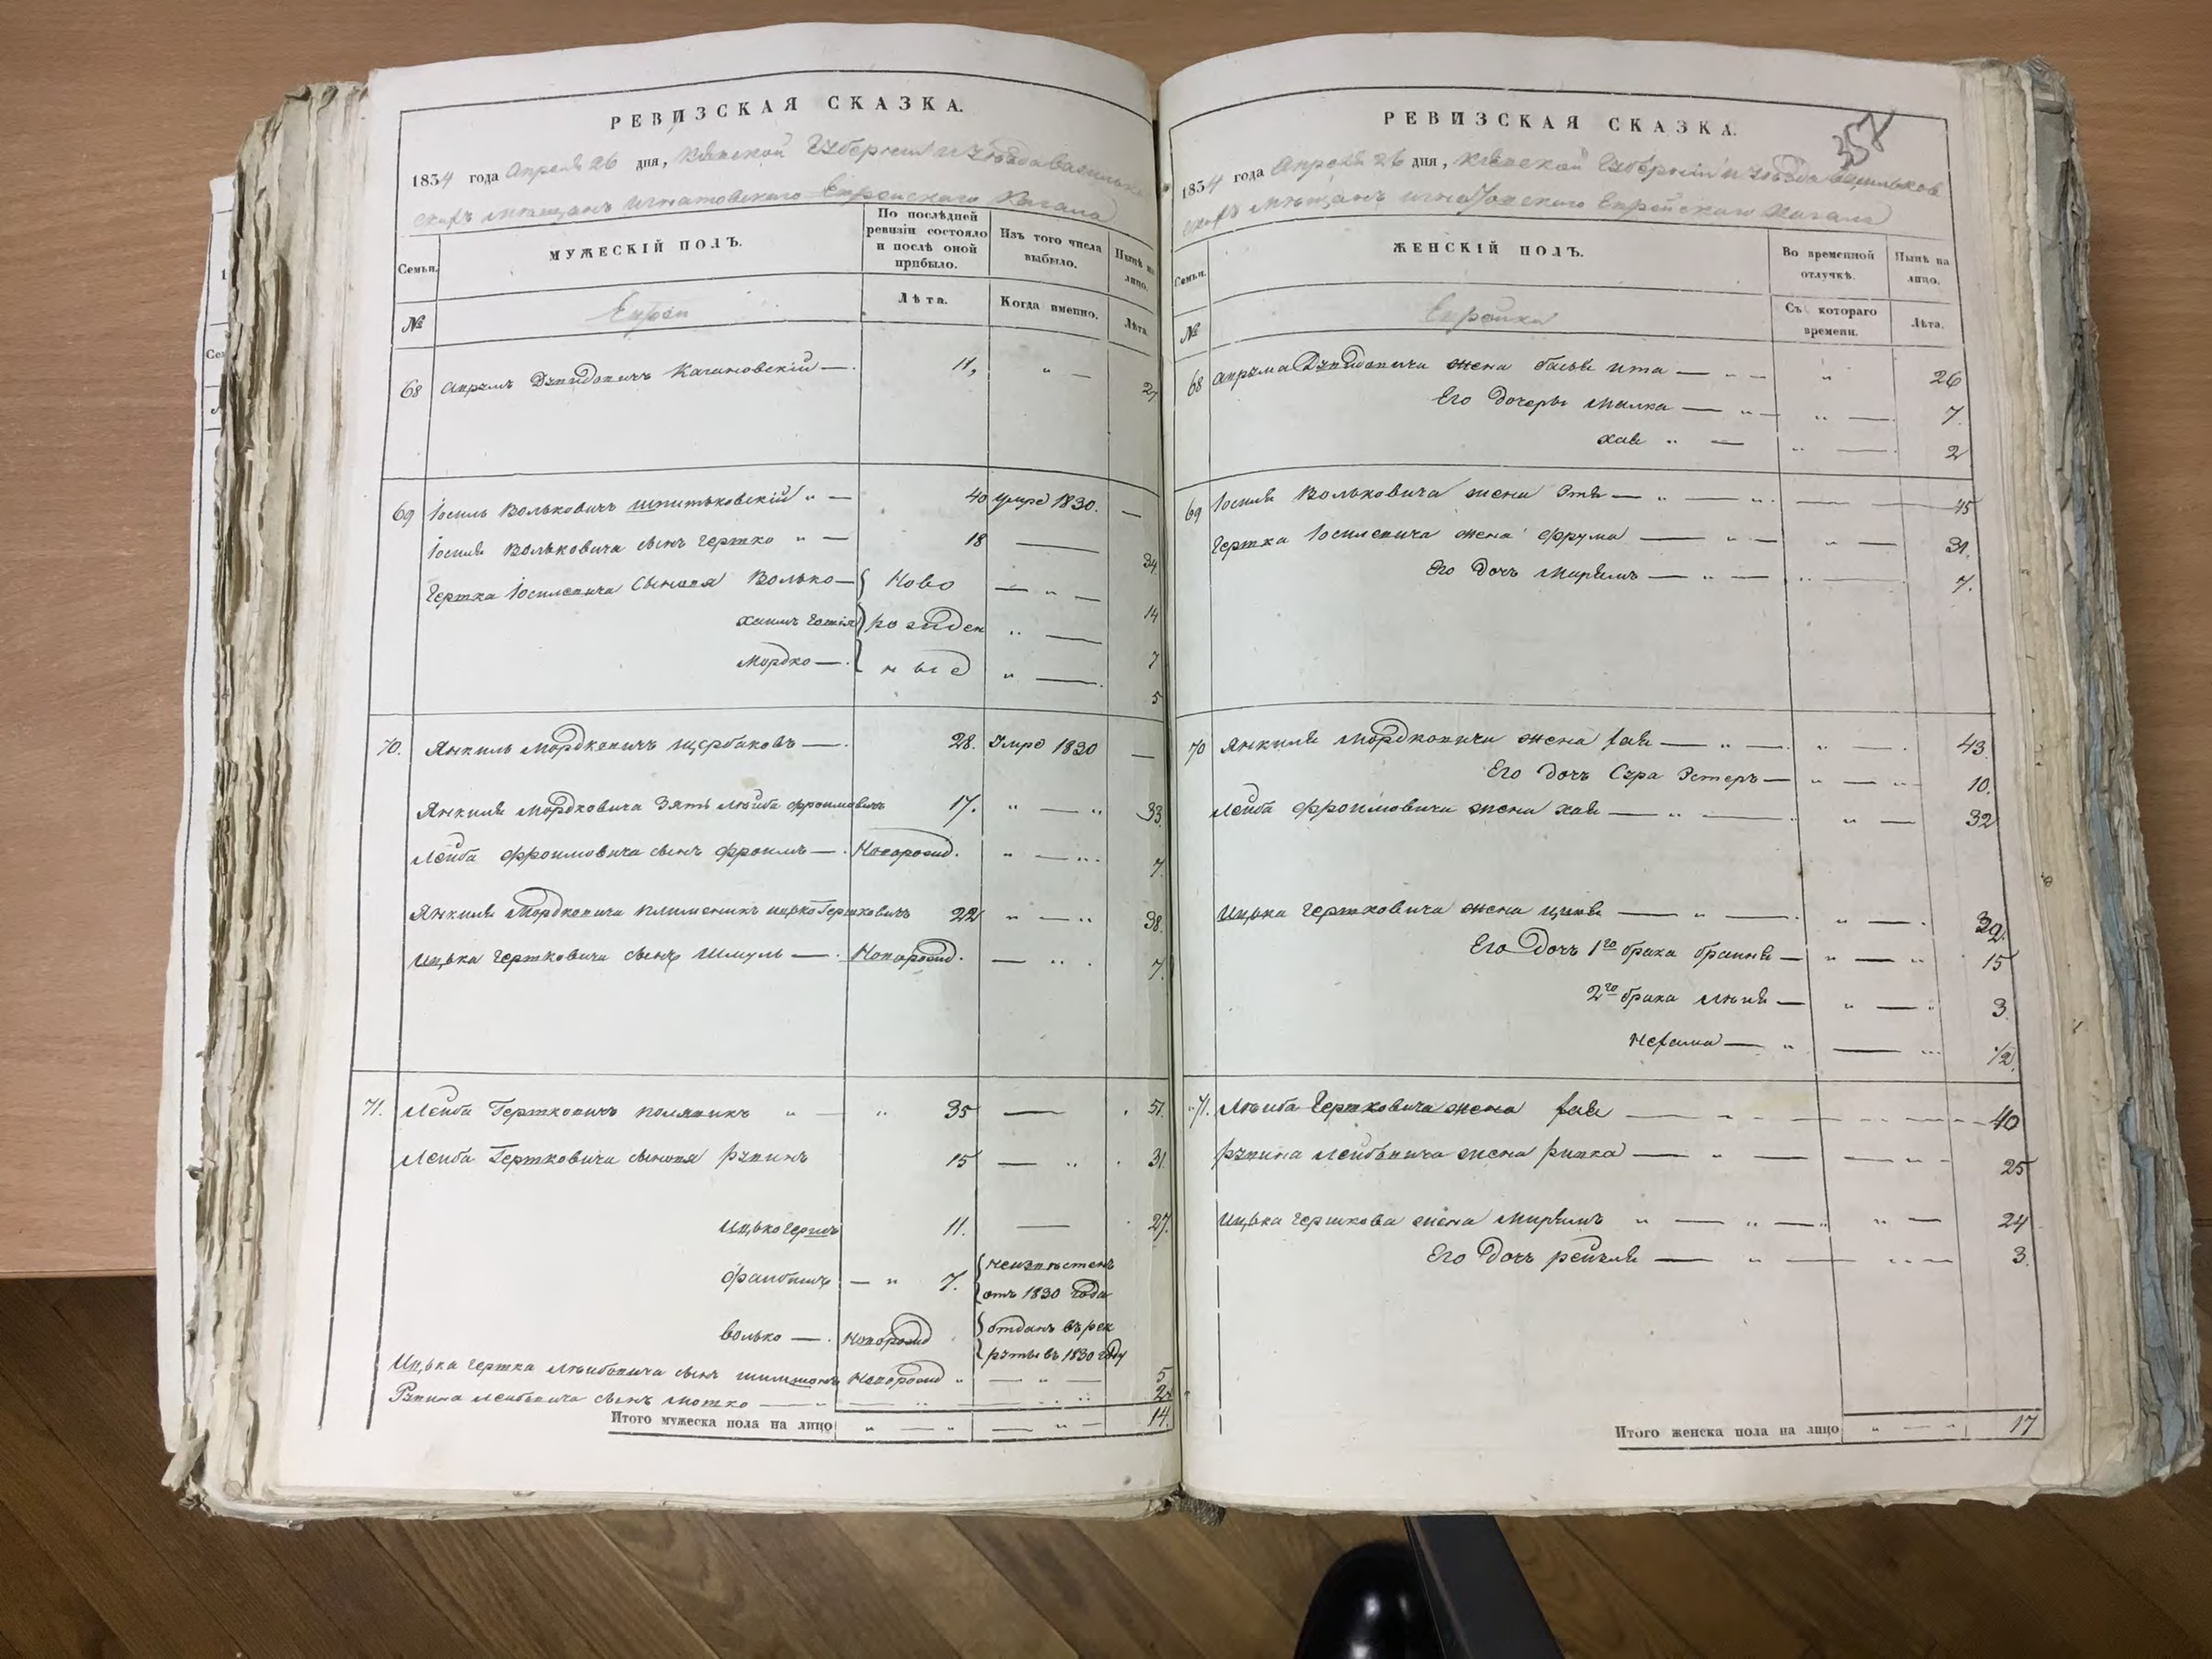 РЕВИЗСКАЯ СКАЗКА.
1834 года Апреля 26 дня, Кіевской Губерніи и уѣзда Васильков
скихъ мѣщанъ Игнатовского Еврейского Кагала
Семьи.
МУЖЕСКІЙ ПОЛЪ.
По послѣдней ревизіи состояло и послѣ оной прибыло.
Изъ того числа выбыло.
Нынѣ на лицо.
№
Евреи
Лѣта.
Когда именно.
Лѣта.
68 Аврумъ Дувидовичъ Кагановскій — 11, " — 27
69 Іосиль Вольковичъ Шпитьковскій " — 40 умре 1830. —
Іосиля Вольковича сынъ Гершко " — 18 — 34
Гершка Іосилевича сыновя Волько — { Ново — " — 14
Хаимъ } рожден " — 7
Мордко — { ные " — 5
70. Янкиль Мордковичъ Щербаковъ — 28. Умре 1830 —
Янкиля Мордковича зять Лейба Фроимовичъ 17. " — " 33.
Лейба Фроимовича сынъ Фроимъ — Новорожд. " — " 7.
Янкиля Мордковича племеникъ Ицко Гершковичъ 22 " — " 38.
Ицька Гершковича сынъ Шмуль — Новорожд. — " 7.
71. Лейба Гершковичъ " — " 35 — 51.
Лейба Гершковича сыновя Рувинъ 15 — " 31.
Ицько Гершъ 11. — 27.
— " 7. { неизвѣстенъ
{ отъ 1830 года
Волько — Новорожд { отданъ въ рек
{ руты въ 1830 году
Ицька Гершка Лейбовича сынъ Новорожд " — " — 5
Рувина Лейбовича сынъ Мошко — " — 2
Итого мужеска пола на лицо " — " — " — 14.
РЕВИЗСКАЯ СКАЗКА.
358
1834 года Апреля 26 дня, Кіевской Губерніи и уѣзда Васильков
скихъ мѣщанъ Игнатовского Еврейского Кагала
Семьи.
ЖЕНСКІЙ ПОЛЪ.
Во временной отлучкѣ.
Нынѣ на лицо.
№
Еврейки
Съ котораго времени.
Лѣта.
68 Аврума Дувидовича жена Бася Ита — " — " 26
Его дочеры Малка — " — " — 7.
Хая " — " — 2
69 Іосиля Вольковича жена Этя — " — " — 45
Гершка Іосилевича жена Фрума — " — " — 31.
Его дочъ Марьямъ — " — " — 7.
70 Янкиля Мордковича жена Хая — " — " — 43.
Его дочъ Сура Эстеръ — " — " 10.
Лейба Фроимовича жена Хая — " — " — 32
Ицька Гершковича жена Ципа — " — " — 32.
Его дочъ 1го брака Браина — " — " 15
2го брака — " — " 3.
Нехама — " — " 1/2.
71. Лейба Гершковича жена Хая — 40
Рувина Лейбовича жена Ривка — " — " — 25
Ицька Гершкова жена Марьямъ " — " — " — 24
Его дочъ Рейзля — " — " — 3.
Итого женска пола на лицо " — " 17